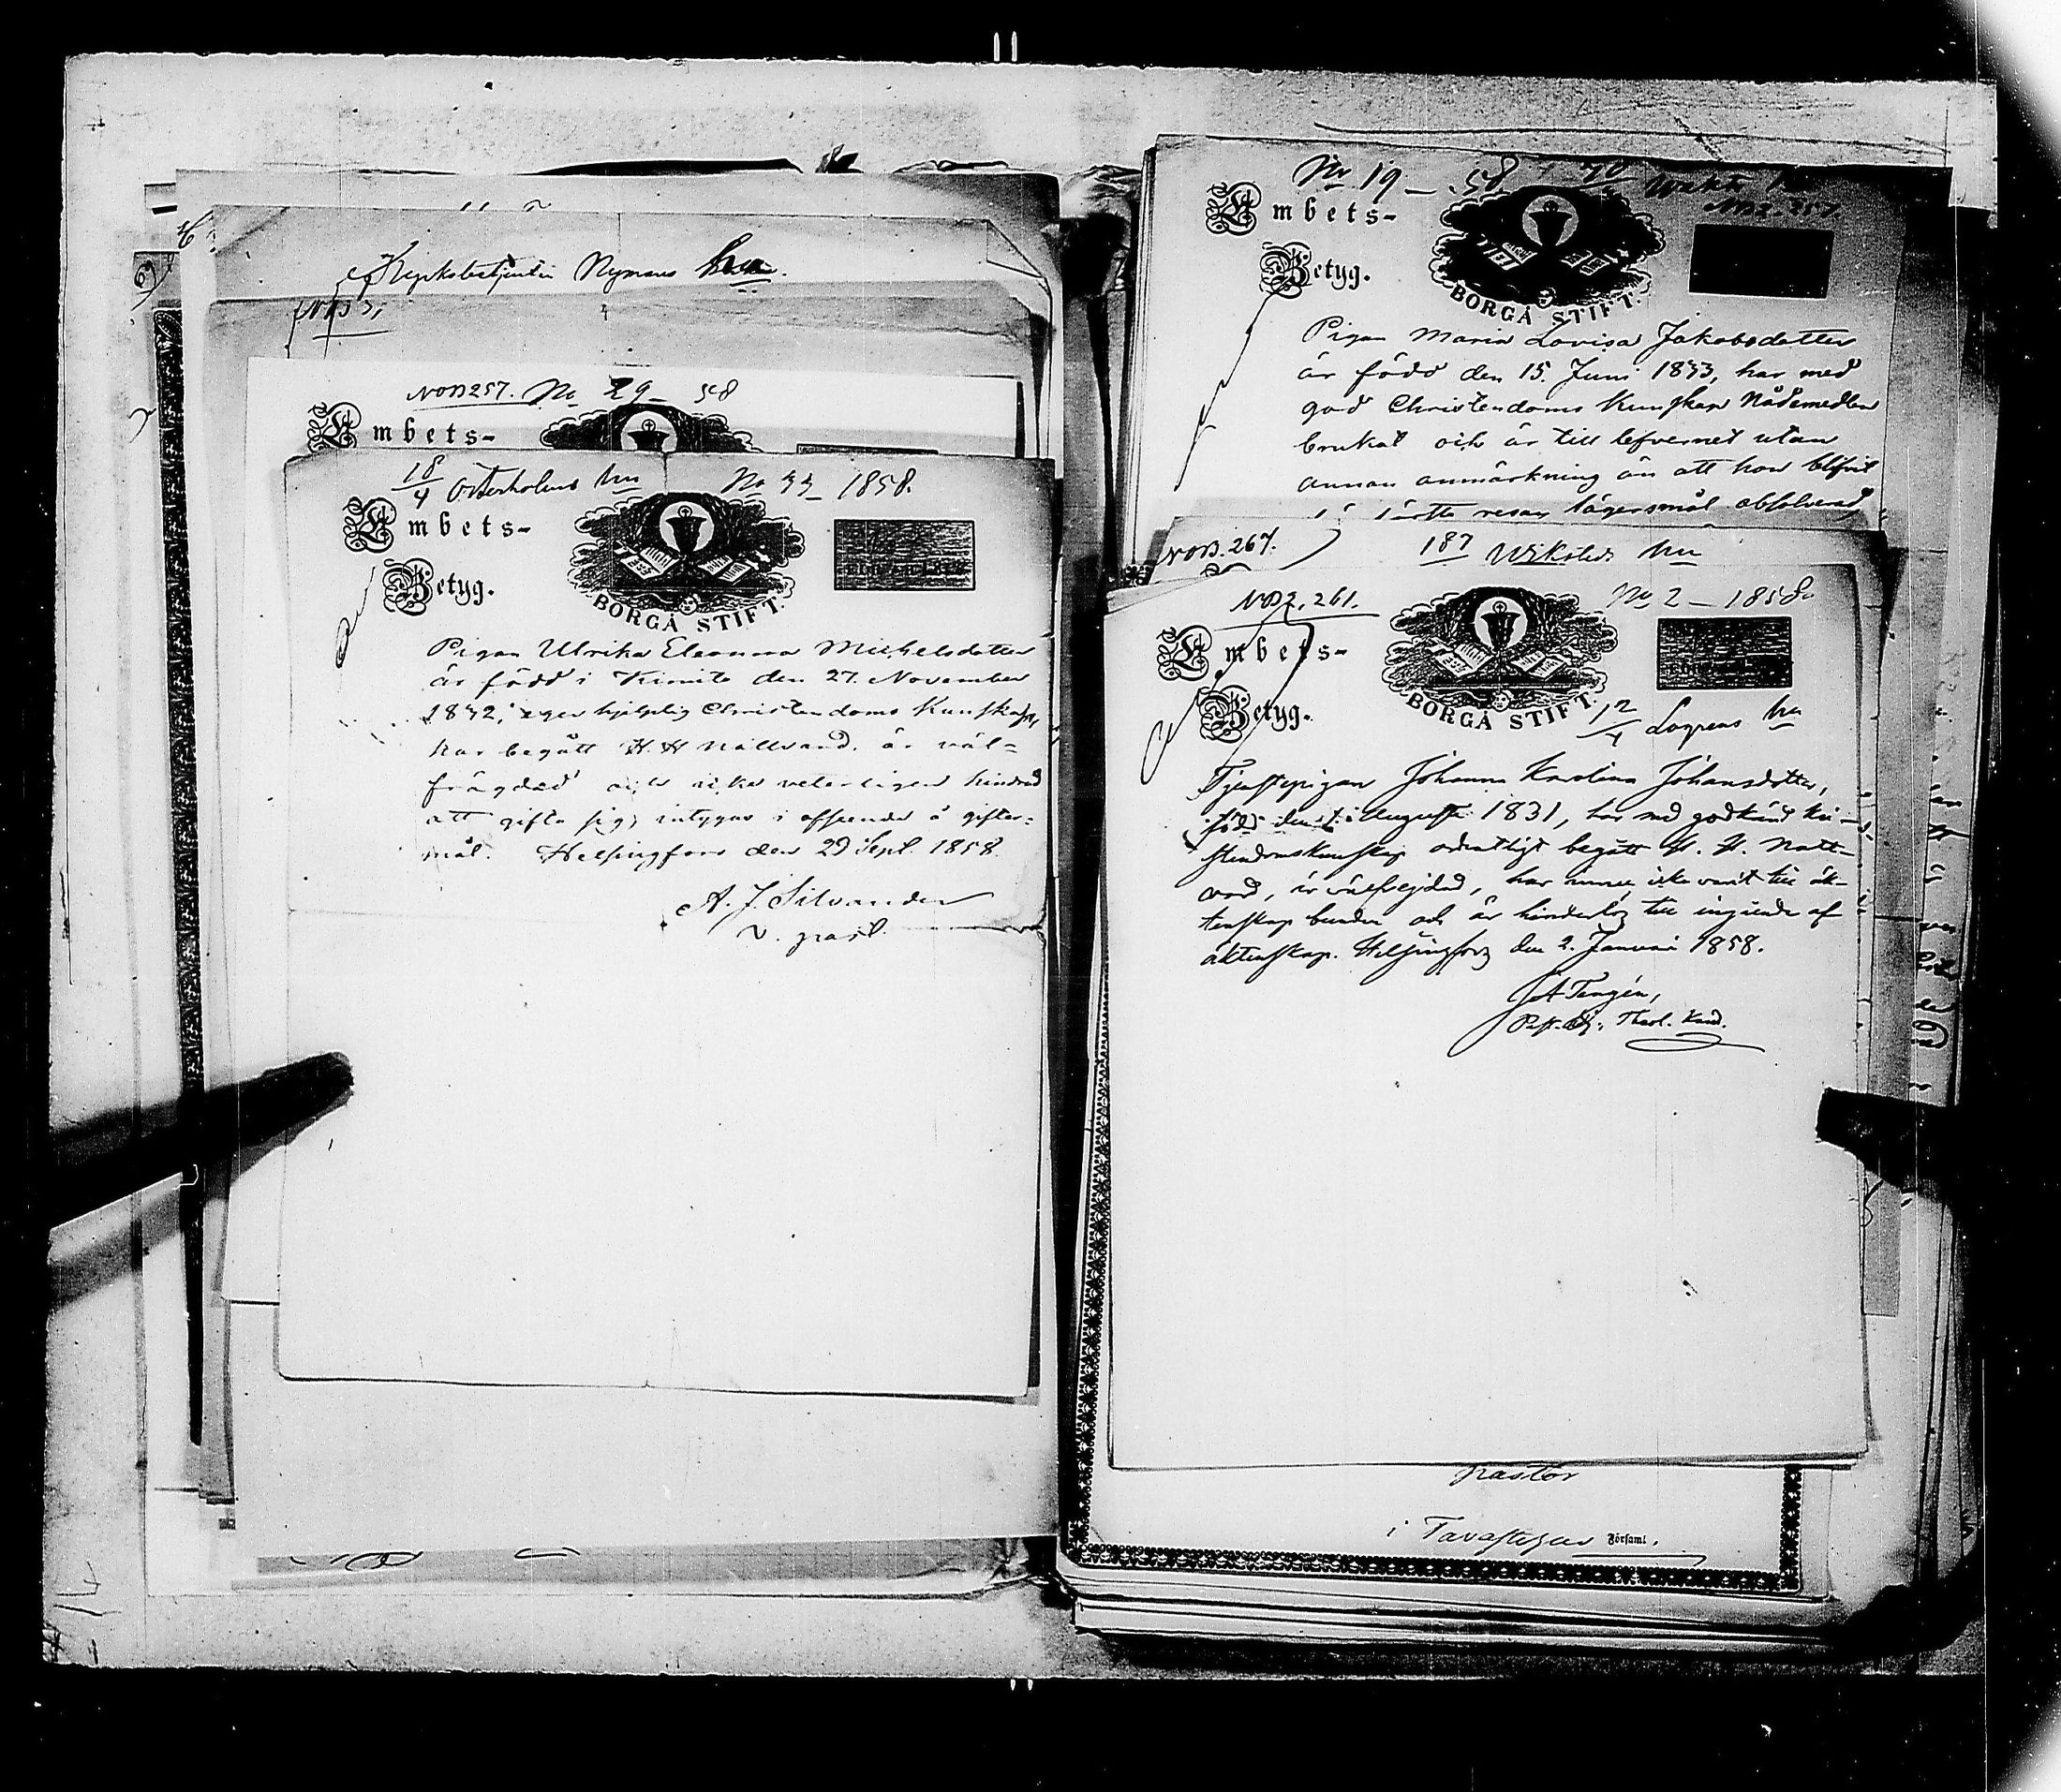 Nymans hu.
N:o 257. No 29 – 58
Embets-
18/4 Österholms hu No 33 – 1858.
Embets-
Betyg.
BORGÅ STIFT.
Pigan Ulrika Eleonora Michelsdotter
är född i Kimito den 27. November
1832, eger hjelplig Christendoms Kunskap,
har begått H. H. Nattvard, är väl-
frägdad och icke veterligen hindrad
att gifta sig, intygas i afseende å gifter-
mål. Helsingfors den 29 Sept 1858.
A. J. Silvander
v. past.
No 19 – 58
No 2. 257.
Embets-
Betyg.
BORGÅ STIFT.
Pigan Maria Lovisa Jakobsdotter
är född den 15. Juni 1833, har med
god Christendoms Kunskap Nådemedlen
brukat och är till lefvernet utan
annan anmärkning än att hon blifvit
resan lägersmål absolverad,
No 267.
187 Wiksteds hu
No 2. 261. No 2 – 1858.
Embets-
Betyg.
BORGÅ STIFT.
12/4 hu
Tjenstepigan Johanna Karolina Johansdotter,
född den 1 Augusti 1831, har med godkänd kri-
stendomskunskap ordentligt begått H. H. Natt-
vard, är välfrejdad, har icke varit till äk-
tenskap bunden och är hinderlös till ingående af
äktenskap. Helsingfors den 2. Januari 1858.
Tengén,
Past. Adj. Theol. Kand.
pastor
i Tavastehus Församl.